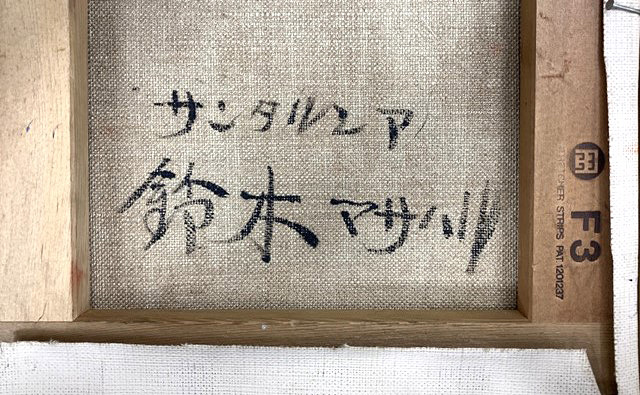 サンタルシア
鈴木マサハル
F3
STRIPS PAT 1201237